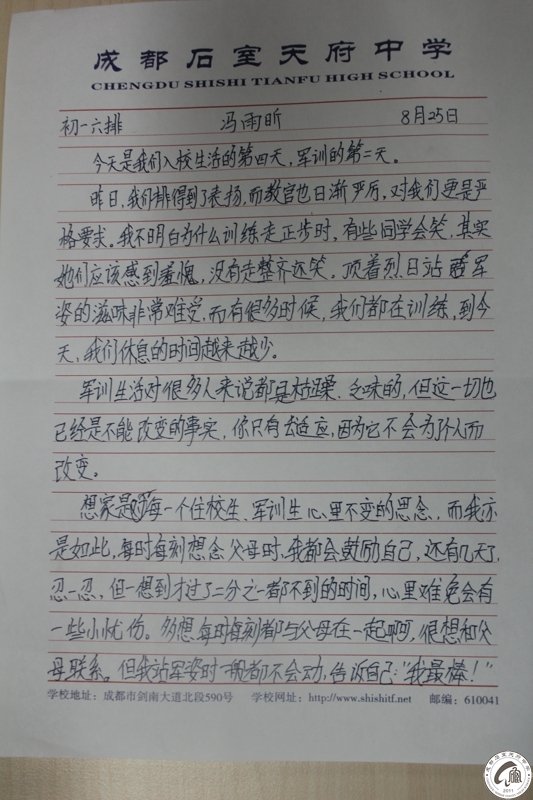 成都石室天府中学
CHENGDU SHISHI TIANFU HIGH SCHOOL
初一六排 冯雨昕 8月25日
今天是我们入校生活的第四天,军训的第二天。
昨日,我们排得到了表扬,而教官也日渐严厉,对我们更是严
格要求。我不明白为什么训练走正步时,有些同学会笑,其实
她们应该感到羞愧,没有走整齐还笑。顶着烈日站军
姿的滋味非常难受,而有很多时候,我们都在训练,到今
天,我们休息的时间越来越少。
军训生活对很多人来说都是枯躁、乏味的,但这一切也
已经是不能改变的事实,你只有去适应,因为它不会为个人而
改变。
想家是每一个住校生、军训生心里不变的思念,而我亦
是如此,每时每刻想念父母时,我都会鼓励自己,还有几天了,
忍一忍,但一想到才过了二分之一都不到的时间,心里难免会有
一些小忧伤。多想每时每刻都与父母在一起啊,很想和父
母联系。但我站军姿时一般都不会动,告诉自己:“我最棒!”
学校地址:成都市剑南大道北段590号 学校网址:http://www.shishitf.net 邮编:610041
2011